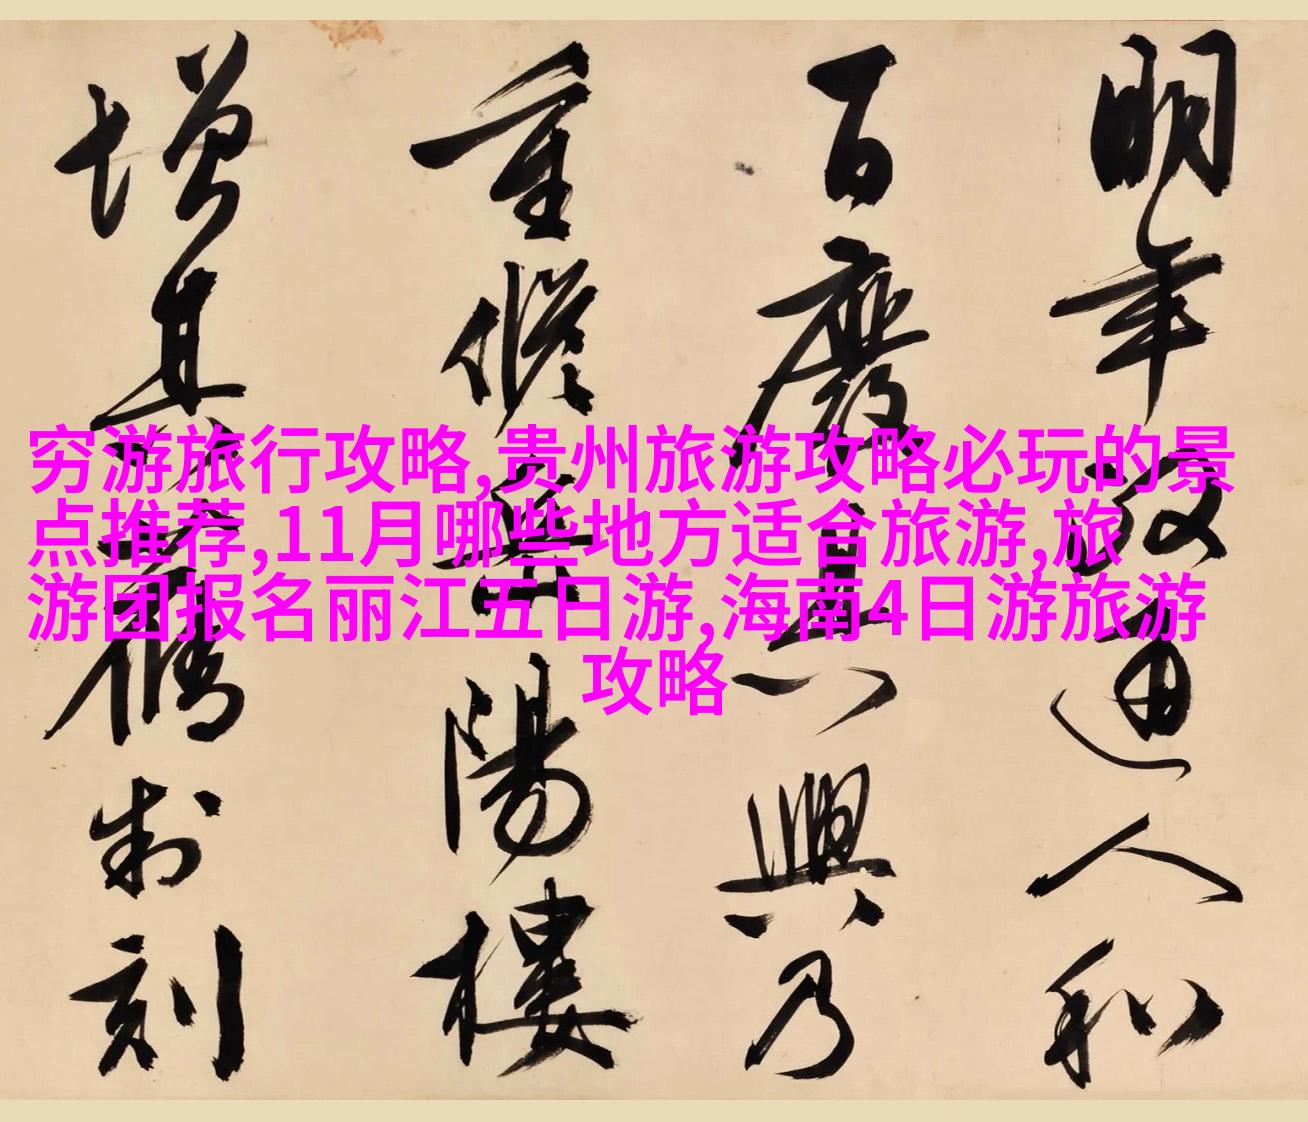 明年政通人和
百廢具興乃
重脩岳陽樓
增其舊脩制刻
穷游旅行攻略,贵州旅游攻略必玩的景
点推荐,11月哪些地方适合旅游,旅
游团报名丽江五日游,海南4日游旅游
攻略